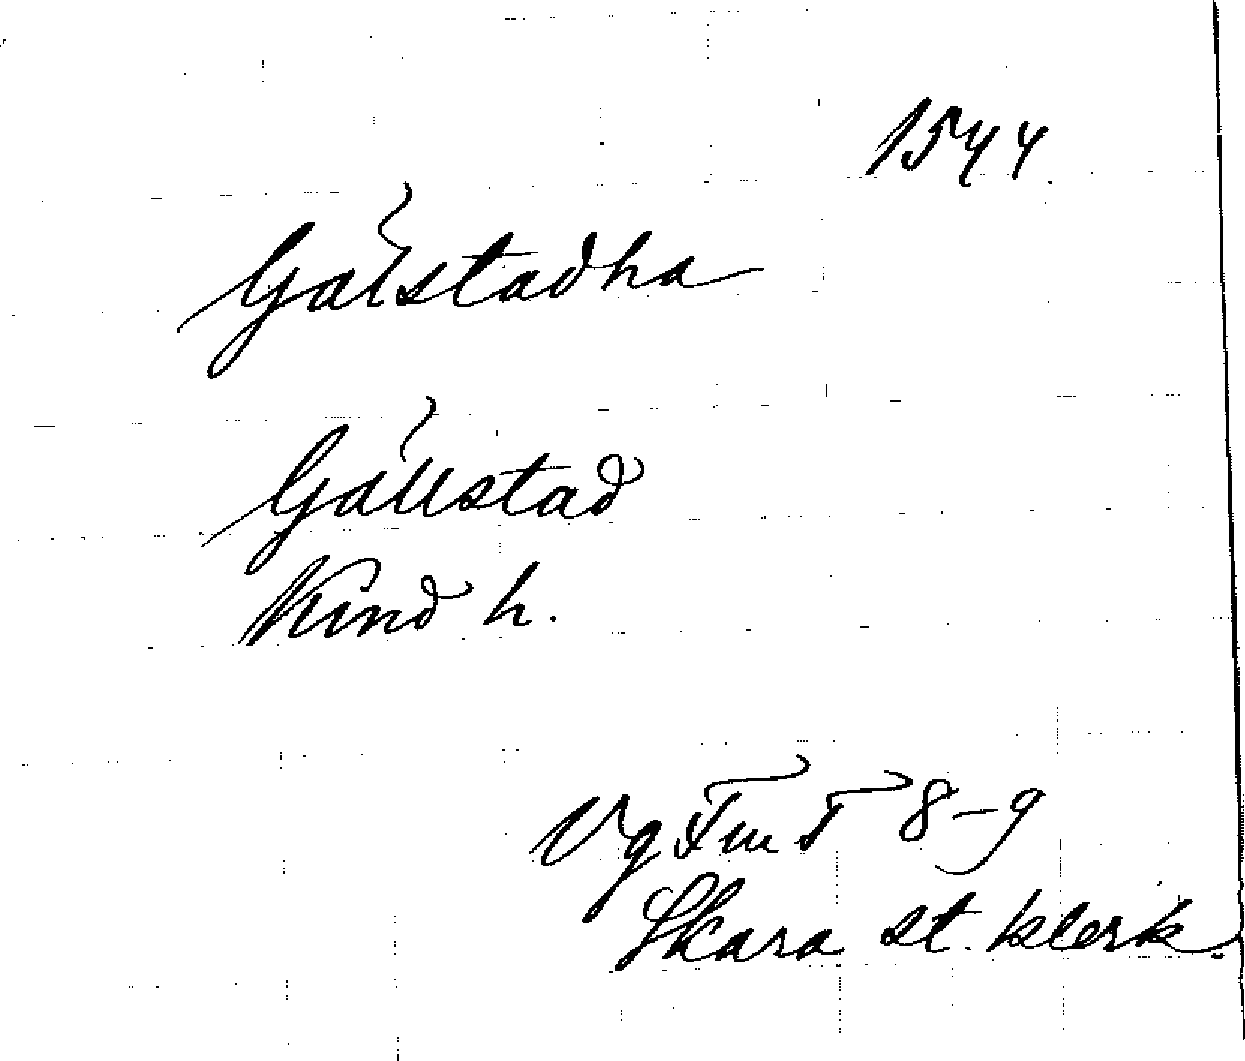 1544
Gälstadha
Gällstad
Kind h.
Vg Fm T 8-9
Skara st. klerk.